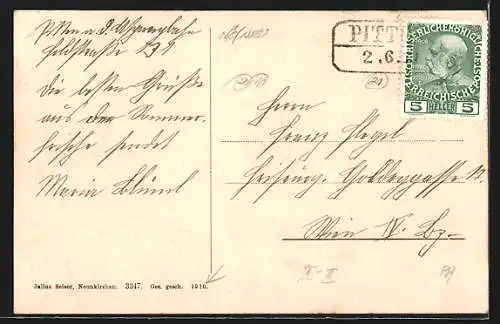 Pitten a. d. Aspangbahn
Feldstraße 139
Die besten Grüße
aus der Sommer-
frische sendet
Maria Blüml
PITT
2.6.
KAISERLICHEKÖNIGLICHE
ÖSTERREICHISCHE
5 HELLER 5
Herrn
Franz Flegel
Goldeggasse
Wien IV. Bz.
I-II
Julius Seiser, Neunkirchen. 3347. Ges. gesch. 1910.